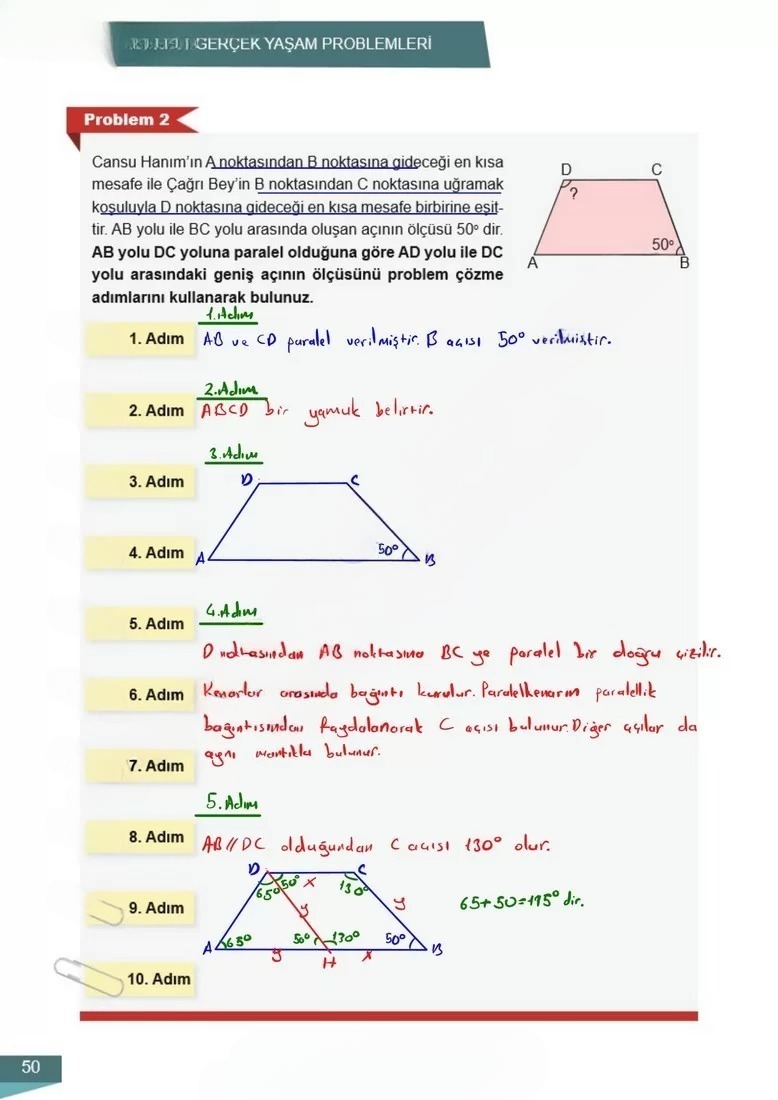 GERÇEK YAŞAM PROBLEMLERİ
Problem 2
Cansu Hanım'ın A noktasından B noktasına gideceği en kısa
mesafe ile Çağrı Bey'in B noktasından C noktasına uğramak
koşuluyla D noktasına gideceği en kısa mesafe birbirine eşit-
tir. AB yolu ile BC yolu arasında oluşan açının ölçüsü 50° dir.
AB yolu DC yoluna paralel olduğuna göre AD yolu ile DC
yolu arasındaki geniş açının ölçüsünü problem çözme
adımlarını kullanarak bulunuz.
D C
?
50°
A B
1. Adım
1. Adım AB ve CD paralel verilmiştir. B açısı 50° verilmiştir.
2. Adım
2. Adım ABCD bir yamuk belirtir.
3. Adım
3. Adım D C
4. Adım A 50° B
4. Adım
5. Adım
D noktasından AB noktasına BC ye paralel bir doğru çizilir.
6. Adım Kenarlar arasında bağıntı kurulur. Paralelkenarın paralellik
bağıntısından faydalanarak C açısı bulunur. Diğer açılar da
7. Adım aynı mantıkla bulunur.
5. Adım
8. Adım AB//DC olduğundan C açısı 130° olur.
D C
65° 50° x 130°
9. Adım y y 65+50=115° dir.
A 65° 50° 130° 50° B
y H x
10. Adım
50